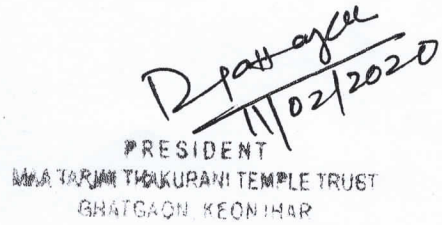 11/02/2020
PRESIDENT
MAA TARINI THAKURANI TEMPLE TRUST
GHATGAON KEONJHAR